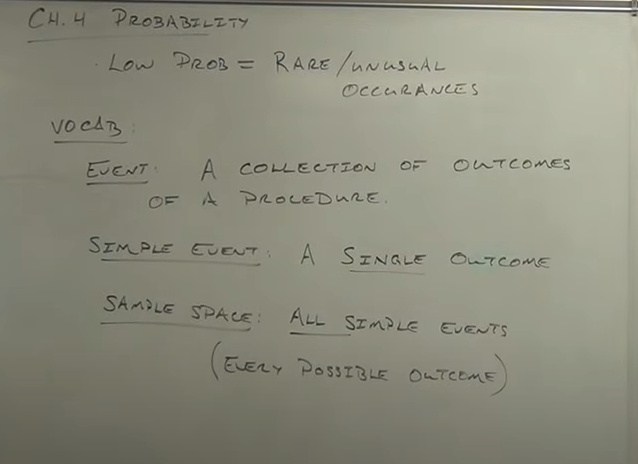 CH.4 PROBABILITY
· LOW PROB = RARE/UNUSUAL
OCCURANCES
VOCAB:
EVENT: A COLLECTION OF OUTCOMES
OF A PROCEDURE.
SIMPLE EVENT: A SINGLE OUTCOME
SAMPLE SPACE: ALL SIMPLE EVENTS
(EVERY POSSIBLE OUTCOME)